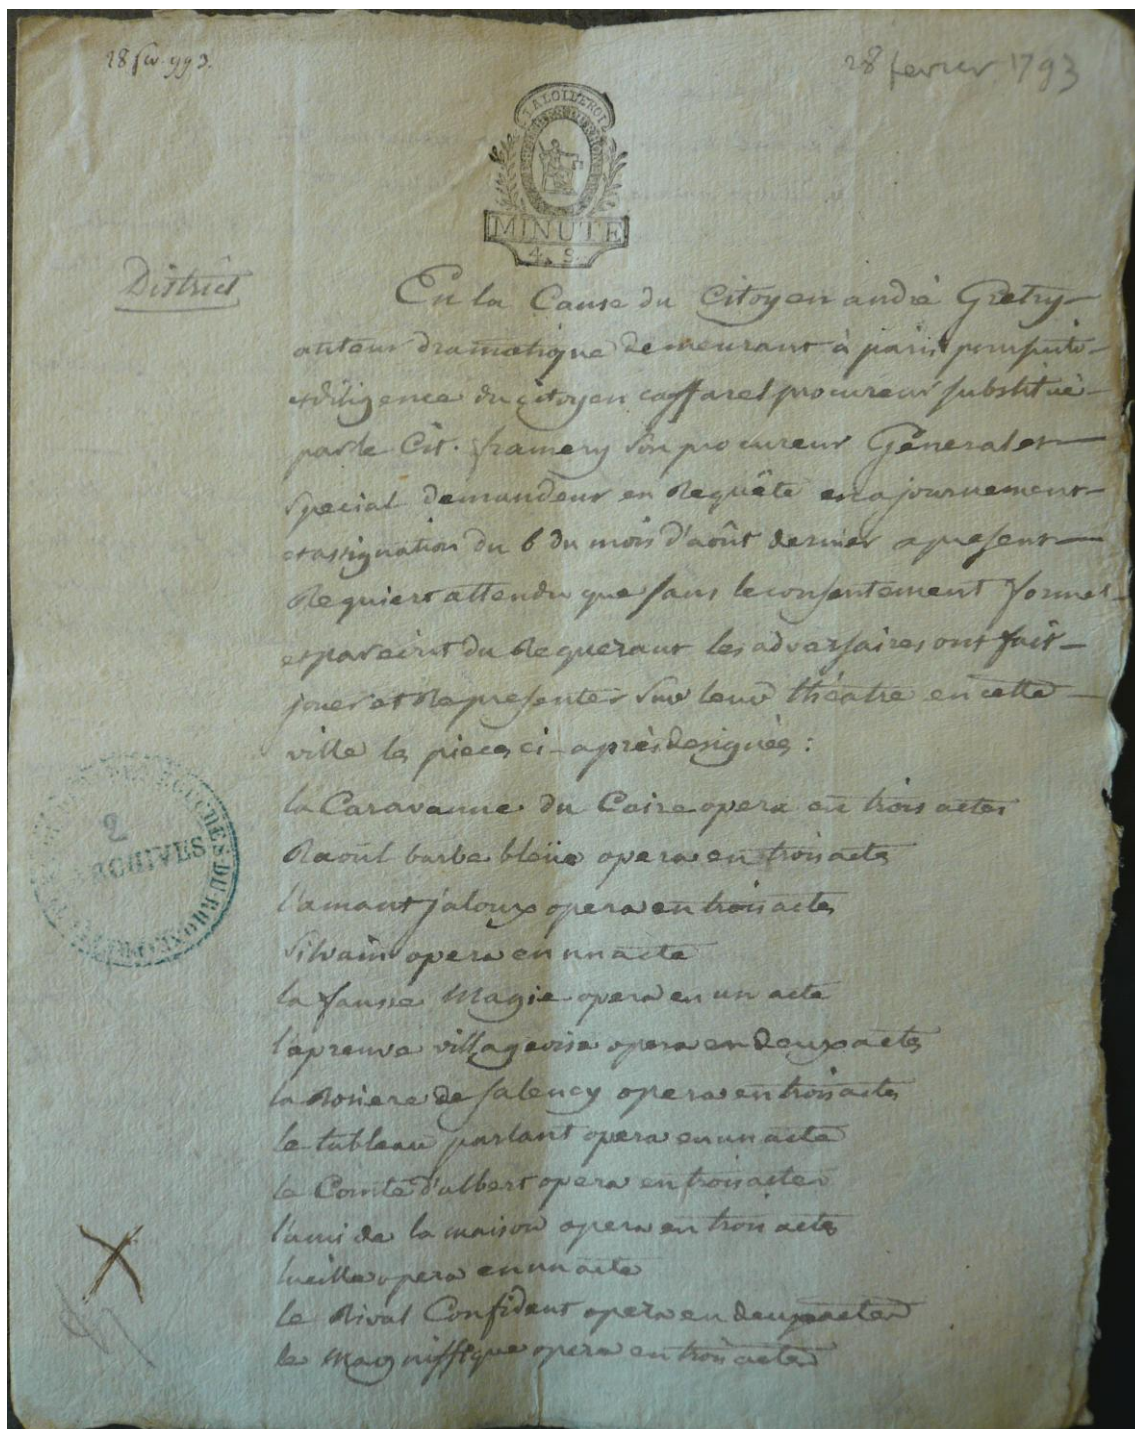 28 fev. 993.
28 fevrier 1793
LA LOI LE ROI
MINUTE
4. S.
District
En la Cause du Citoyen andré Gretry
auteur dramatique demeurant à paris poursuite
et diligence du citoyen caffarel procureur substitué
par le Cit. framery son procureur Général et
special demandeur en Requête en ajournement
et assignation du 6 du mois d'août dernier apresent
Requiert attendu que sans le consentement formel
et par ecrit du Requerant les adversaires ont fait
jouer et Representer sur leur théatre en cette
ville les pieces ci-après designées :
la Caravanne du Caire opera en trois actes
Raoul barbe bleüe opera en trois actes
l'amant jaloux opera en trois actes
Silvain opera en un acte
la fausse Magie opera en un acte
l'epreuve villageoise opera en deux actes
la Rosiere de salency opera en trois actes
le tableau parlant opera en un acte
le Comte d'albert opera en trois actes
l'ami de la maison opera en trois actes
lucille opera en un acte
le Rival Confident opera en deux actes
le Magniffique opera en trois actes
2
ARCHIVES
DU RHONE